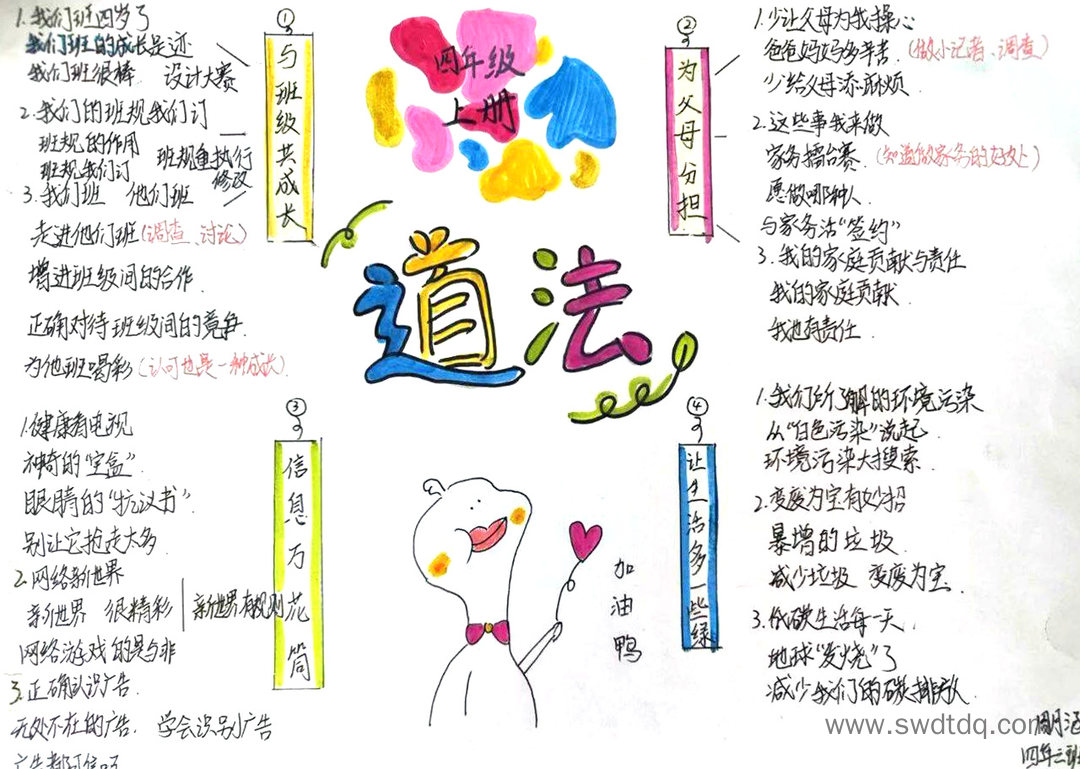 四年级
上册
道法
①
与班级共成长
1.我们班四岁了
我们班的成长足迹
我们班很棒 设计大赛
2.我们的班规我们订
班规的作用
班规我们订 班规重执行
修改
3.我们班 他们班
走进他们班(调查、讨论)
增进班级间的合作
正确对待班级间的竞争
为他班喝彩(认可也是一种成长)
②
为父母分担
1.少让父母为我操心
爸爸妈妈多辛苦 (做小记者、调查)
少给父母添麻烦
2.这些事我来做
家务擂台赛 (知道做家务的好处)
愿做哪种人
与家务活“签约”
3.我的家庭贡献与责任
我的家庭贡献
我也有责任
③
信息万花筒
1.健康看电视
神奇的“宝盒”
眼睛的“抗议书”
别让它抢走太多
2.网络新世界
新世界 很精彩 新世界有规则
网络游戏的是与非
3.正确认识广告
无处不在的广告. 学会识别广告
④
让生活多一些绿
1.我们所了解的环境污染
从“白色污染”说起
环境污染大搜索
2.变废为宝有妙招
暴增的垃圾
减少垃圾 变废为宝
3.低碳生活每一天
地球“发烧”了
减少我们的碳排放
加油鸭
www.swdtdq.com
四年二班